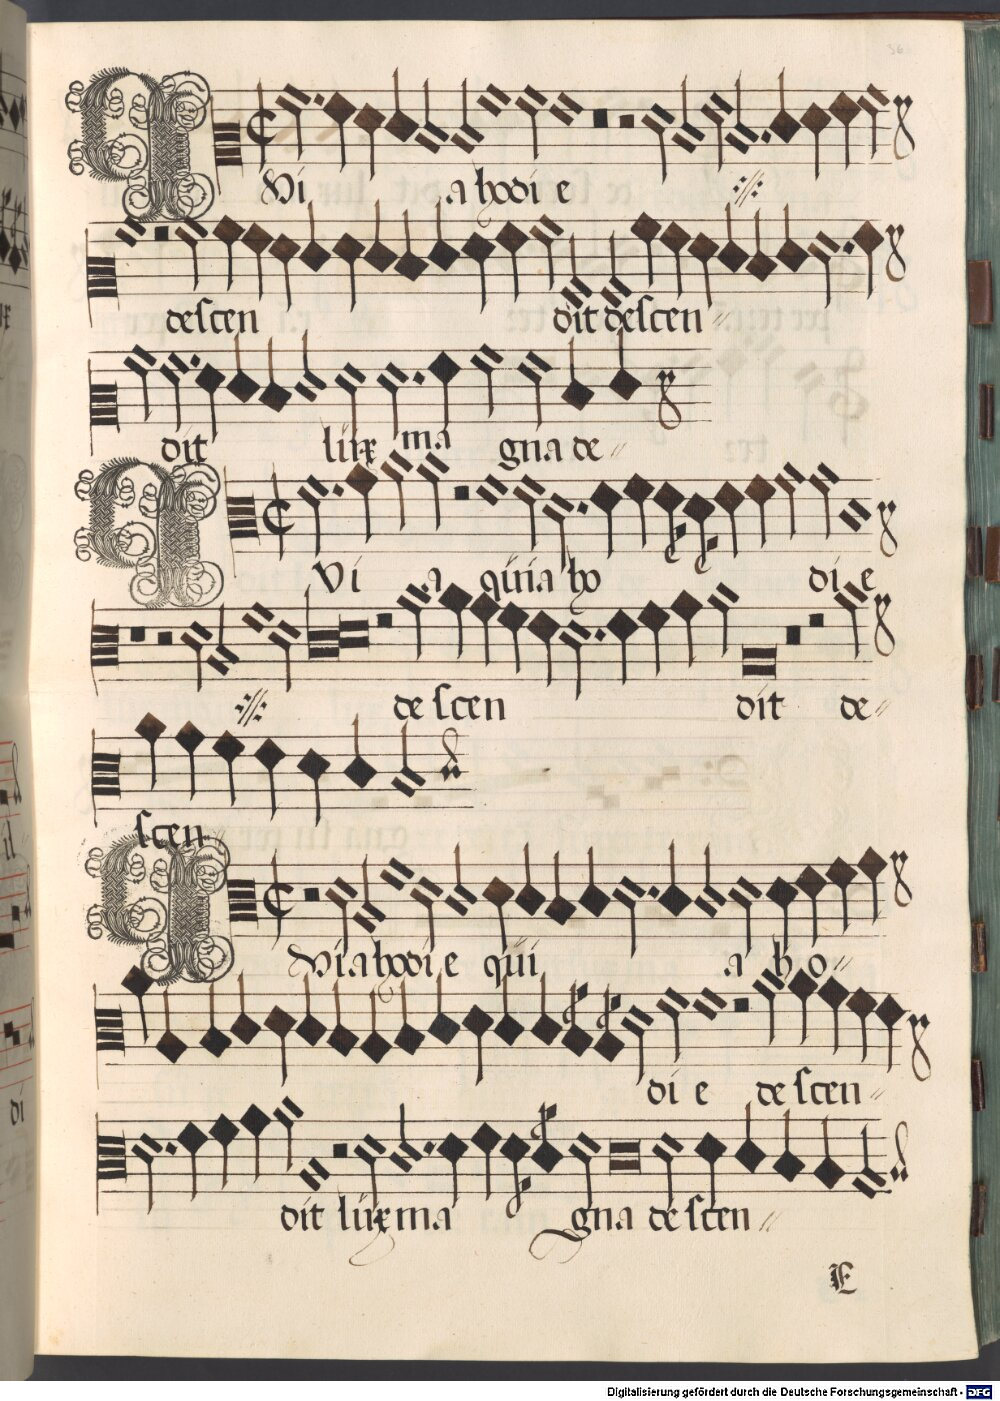 Qui a hodie
descen dit descen
dit lux magna de
Qui a quia ho di e
descen dit de
scen
Quia hodie qui a ho
di e descen
dit lux magna descen
E
Digitalisierung gefördert durch die Deutsche Forschungsgemeinschaft - DFG